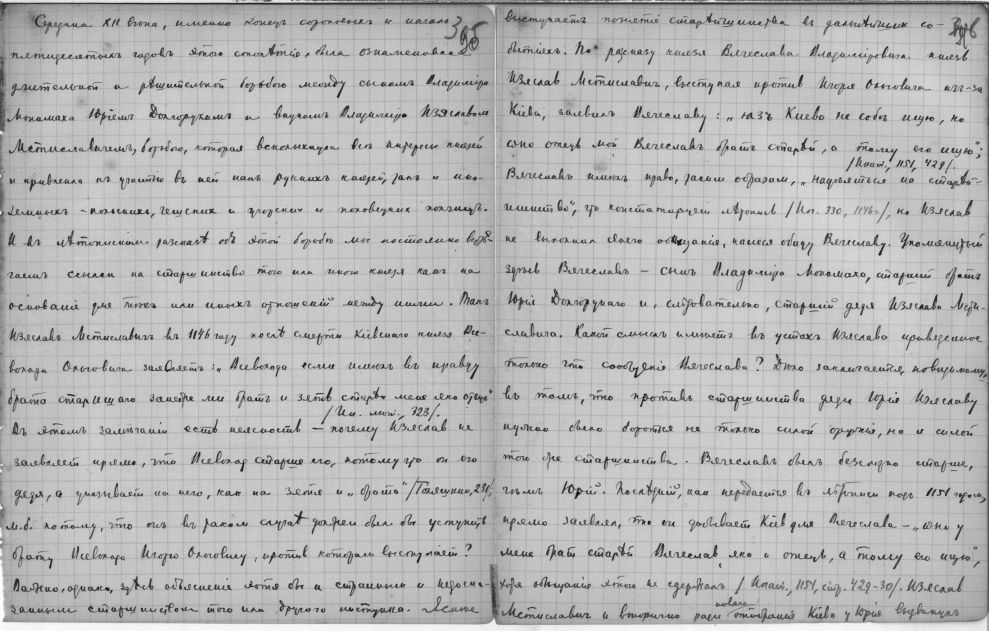 Средина XII вѣка, именно конецъ сороковыхъ и начало
пятидесятыхъ годовъ этого столѣтія, была ознаменована
длительной и рѣшительной борьбою между сыномъ Владиміра
Мономаха Юріемъ Долгорукимъ и внукомъ Владиміра Изяславомъ
Мстиславичемъ, борьбою, которая всколыхнула всѣ интересы князей
и привлекла къ участію въ ней какъ русскихъ князей, такъ и ино-
земныхъ – польскихъ, чешскихъ и угорскихъ и половецкихъ полчищъ.
И въ лѣтописномъ разсказѣ объ этой борьбѣ мы постоянно встрѣ-
чаемъ ссылки на старшинство того или иного князя какъ на
основаніе для тѣхъ или иныхъ отношеній между ними. Такъ
Изяславъ Мстиславичъ въ 1146 году послѣ смерти Кіевскаго князя Все-
волода Ольговича заявляетъ: „Всеволода есми имѣлъ въ правду
брата старишаго занеже ми братъ и зять старѣй мене яко отецъ"
/Ип. лѣт., 323/.
Въ этомъ замѣчаніи есть неясность – почему Изяславъ не
заявляетъ прямо, что Всеволод старше его, потому что он его
дядя, а указываетъ на него, как на зятя и „брата" /Пресняков, 231/,
м.б. потому, что онъ въ таком случаѣ должен был бы уступить
брату Всеволода Игорю Ольговичу, против котораго выступает?
Важно, однако, здѣсь объясненіе хотя бы и страннымъ и недоска-
занным старшинством того или другого поступка. Яснѣе
396
выступаетъ понятіе старѣйшинства въ дальнѣйших со-
бытіях. По разсказу князя Вячеслава Владиміровича князь
Изяслав Мстиславич, выступая против Игоря Ольговича изъ-за
Кіева, заявилъ Вячеславу: „язъ Киева не собѣ ищю, но
оно отець мой Вячеславъ братъ старѣй, а тому его ищю";
/Ипат., 1151, 429/.
Вячеславъ имѣлъ право, таким образом, „надѣяться на старѣй-
шинство", что констатируетъ лѣтопись /Ип. 330, 1146г/, но Изяслав
не выполнил своего обѣщанія, нанеся обиду Вячеславу. Упомянутый
здѣсь Вячеслав – сынъ Владиміра Мономаха, старшій братъ
Юрія Долгорукаго и, слѣдовательно, старшій дядя Изяслава Мсти-
славича. Какой смыслъ имѣетъ въ устахъ Изяслава приведенное
только что сообщеніе Вячеслава? Дѣло заключается, повидимому,
въ томъ, что противъ старшинства дяди Юрія Изяславу
нужно было бороться не только силой оружія, но и силой
того же старшинства. Вячеславъ былъ безспорно старше,
чѣмъ Юрій. Послѣдній, как передается въ лѣтописи подъ 1151 годом,
прямо заявлял, что он добывает Кіев для Вячеслава – „оно у
мене брат старѣй Вячеслав яко и отець, а тому его ищю",
хотя обѣщанія этого не сдержалъ /Ипат., 1151, стр. 429-30/. Изяслав
Мстиславич и вторично ради новаго отобранія Кіева у Юрія выдвинулъ